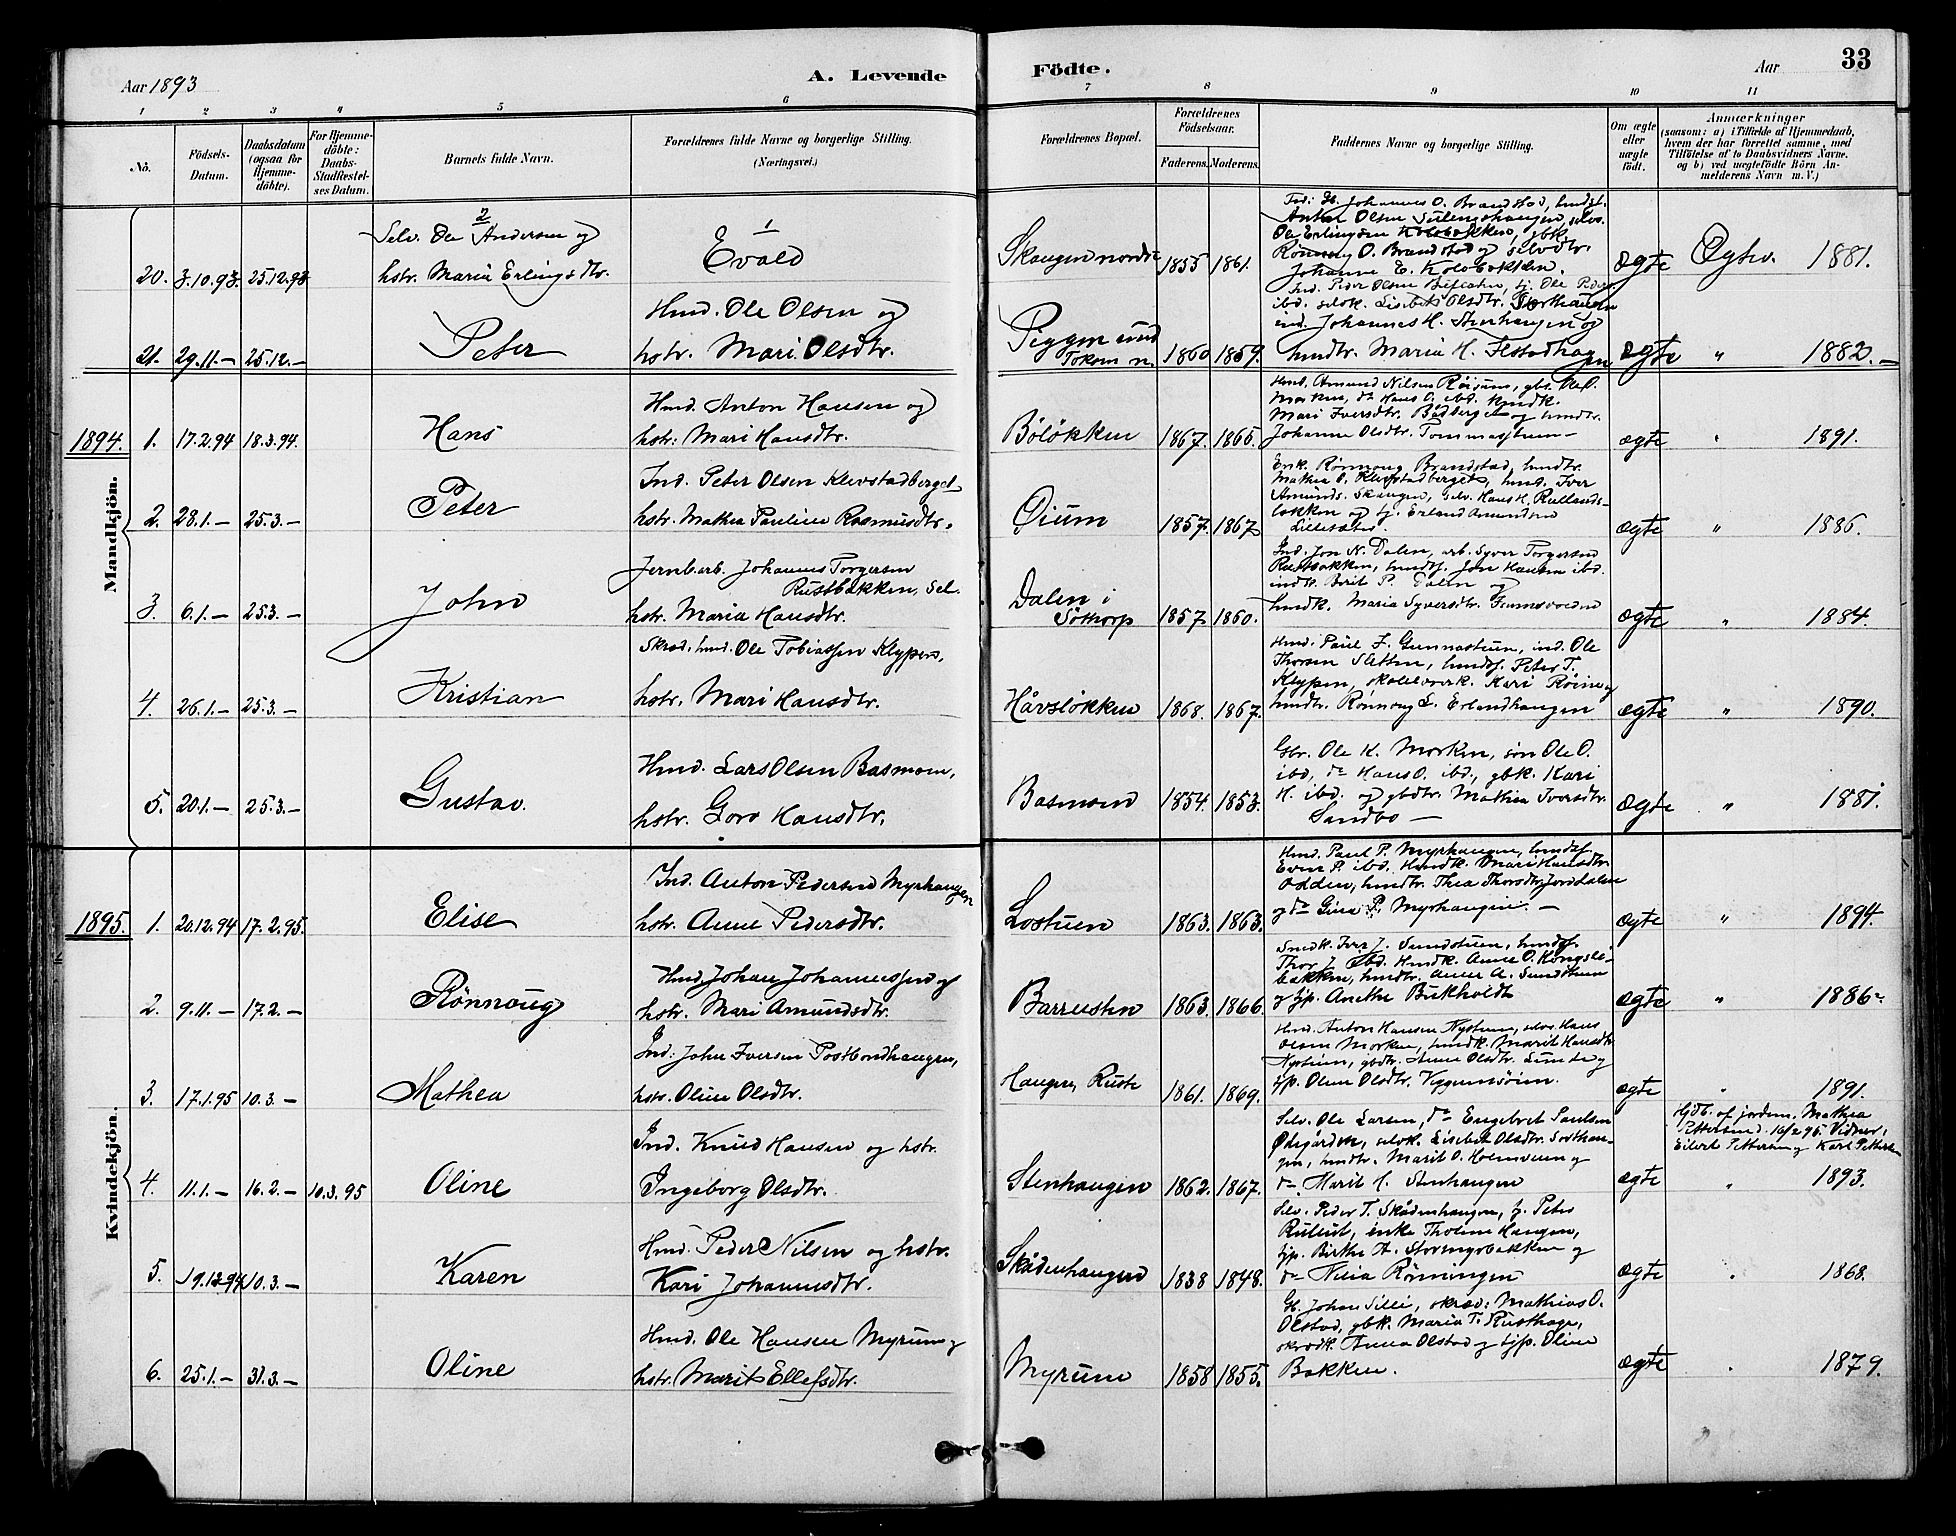 Aar 1893
A. Levende
Födte.
Aar
33
1 2 3 4 5 6 7 8 9 10 11
No.
Födsels-
Datum.
Daabsdatum
(ogsaa for
Hjemme-
döbte).
For Hjemme-
döbte:
Daabs-
Stadfæstel-
ses Datum.
Barnets fulde Navn.
Forældrenes fulde Navne og borgerlige Stilling.
(Næringsvei.)
Forældrenes Bopæl.
Forældrenes
Födselsaar.
Faderens. Moderens.
Faddernes Navne og borgerlige Stilling.
Om ægte
eller
uægte
födt.
Anmærkninger
(saasom: a) i Tilfælde af Hjemmedaab,
hvem der har forrettet samme, med
Tilföielse af to Daabsvidners Navne.
og b) ved uægtefödte Börn An-
melderens Navn m. V.)
2
Selv. Ole Andersen og
hstr. Maria Erlingsdtr.
1
Evald
20. 3.10.93. 25.12.93
Skaugen nordre 1855 1861.
Ind. H. Johannes O. Brandstad, hmdsf.
Anton Olsen Sulengshaugen, selv.
Ole Erlingsen Kolobakken, gbk.
Rønnaug O. Brandstad og selvdtr.
Johanne E. Kolobakken.
ægte Ogsv. 1881.
21. 29.11.– 25.12.– Peter
Hmd. Ole Olsen og
hstr. Mari Olsdtr.
Piggen und
Tokom n. 1860 1859.
Ind. Peder Olsen
ibd. selvk. Lisbet Olsdtr. Storhaugen
ind. Johannes H. Stenhaugen og
hmdtr. Maria H. Flstadhagen
ægte " 1882.–
1894.
Mandkjön.
1. 17.2.94 18.3.94. Hans
Hmd. Anton Hansen og
hstr: Mari Hansdtr.
Böløkken 1867. 1865.
Hmd. Amund Nilsen Röisum, gbs. Ole O.
Morken, do Hans O. ibd. hmdk.
Mari Iversdtr. Bødberget og hmdtr.
Johanne Olsdtr. Tommasstuen –
ægte " 1891.
2. 28.1.– 25.3.– Peter
Ind. Peter Olsen Klevstadberget
hstr. Mathea Pauline Rasmusdtr.
Øium 1857. 1867
Enk. Rønnoug Brandstad, hmdtr.
Mathea O. Klevstadberget, hmd. Iver
Amunds. Skaugen, selv. Hans H. Rullands-
løkken og tj. Erland Amundsen
Lillesæter.
ægte " 1886.
3. 6.1.– 25.3.– John
Jernb.arb. Johannes Torgersen
Rustbakken, Sel.
hstr. Maria Hansdtr.
Dalen i
Söthorp 1857 1860.
Ind. Jon N. Dalen, arb. Syver Torgersen
Rustbakken, hmdsf. Jon Hansen ibd.
indk. Berit P. Dalen og
hmdk. Maria Syversdtr.
ægte " 1884.
4. 26.1.– 25.3.– Kristian
Skræd. hmd. Ole Tobiassen Klypen,
hstr. Mari Hansdtr.
Håvsløkken 1868. 1867.
Hmd. Paul J. Gunnastuen, ind. Ole
Thorsen Sletten, hmdsf. Peter T.
Klypen, skolelærerk. Kari Röine og
hmdtr. Rønnoug L. Erlandhaugen
ægte " 1890.
5. 20.1.– 25.3.– Gustav.
Hmd. Lars Olsen Basmoen,
hstr. Goro Hansdtr.
Basmoen 1854. 1853.
Gbr. Ole H. Morken, søn Ole O.
ibd, do Hans O. ibd., gbk. Kari
H. ibd. og gbdtr. Mathea Iversdtr.
Sandbo –
ægte " 1881.
1895.
Kvindekjön.
1. 20.12.94 17.2.95. Elise
Ind. Anton Pedersen Myrhaugen
hstr. Anne Pedersdtr.
Lostuen 1863. 1863.
Hmd. Paul P. Myrhaugen, hmdsf.
Even P. ibd. Hmdk. Mari Hansdtr.
Odden, hmdtr. Thea Thorsdtr. Jorddalen
og do Gina P. Myrhaugen. –
ægte " 1894.
2. 9.11.– 17.2.– Rönnoug
Hmd. Johan Johannessen og
hstr. Mari Amundsdtr.
Barrusten 1863. 1866.
Smedk. Iver J. Sundstuen, hmdsf.
Thor J. ibd. Hmdk. Anne O. Kongsli-
bakken, hmdtr. Anne A. Sundstuen
og tjp. Anethe Bukholdt
ægte " 1886.
3. 17.1.95 10.3.– Mathea
Ind. John Iversen Postbondhaugen,
hstr. Oline Olsdtr.
Haugen, Ruste 1861. 1869.
Hmd. Anton Hansen Nystuen, selv. Hans
Olsen Morken, hmdk. Marit Hansdtr.
Nystuen, gbdtr. Anne Olsdtr. Lunde og
tjp. Oline Olsdtr. Viggumsøien.
ægte " 1891.
4. 11.1.– 16.2.– 10.3.95 Oline
Ind. Knud Hansen og hstr.
Ingeborg Olsdtr.
Stenhaugen 1862. 1867.
Selv. Ole Larsen, do Engebret Paulsen
Ødegården, selvk. Lisebet Olsdtr. Sorthau-
gen, hmdtr. Marit O. Holmveen og
do. Marit H. Stenhaugen
ægte
Hjdb. af jordem. Mathea
Pettersen d. 16/2 95. Vidner:
Eilert Pettersen og Karl Pettersen
" 1893.
5. 19.12.94 10.3.– Karen
Hmd. Peder Nilsen og hstr.
Kari Johannesdtr.
Skådenhaugen 1838 1848.
Selv. Peder T. Skådenhaugen, tj. Peter
Rulust, enke Tholine Haugen,
tjp. Birthe A. Storengsbakken og
do Nilia Rønningen
ægte " 1868.
6. 25.1.– 31.3.– Oline
Hmd. Ole Hansen Myrum og
hstr. Marit Ellefsdtr.
Myrum 1858 1855.
G. Johan Silli, skræd: Mathias O.
Olstad, gbk. Maria T. Rusthage,
skrædk. Anna Olstad og tjp. Oline
Bakken.
ægte " 1879.